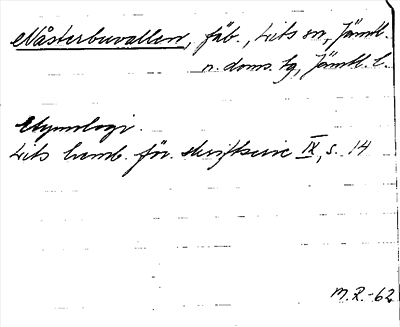 Nåsterbuvallen, fäb., Lits sn, Jämtl.
n. doms. tg, Jämtl. l.
Etymologi.
Lits hemb. för. skriftserie IX, s. 14
M.R.-62